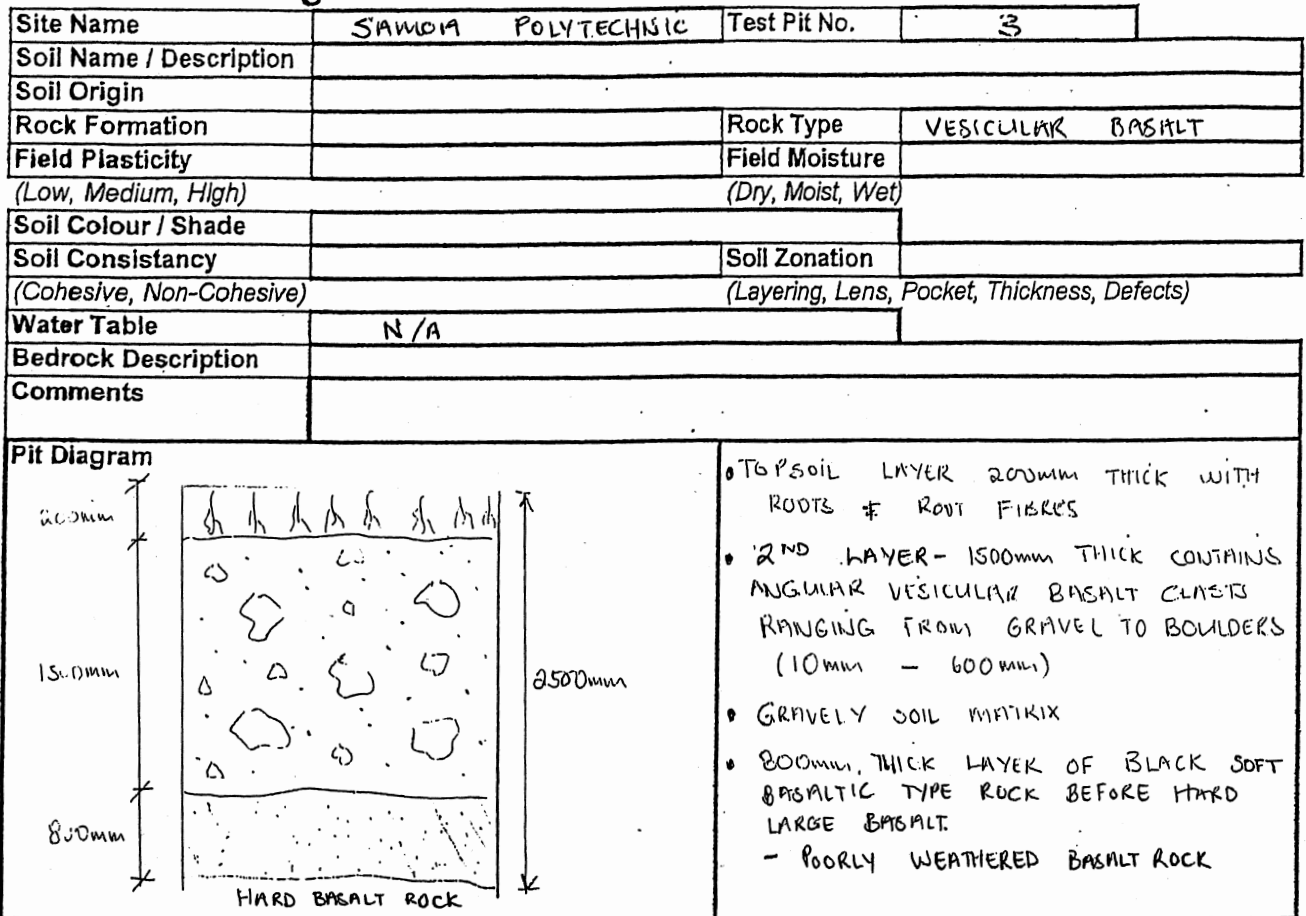 Site Name SAMOA POLYTECHNIC Test Pit No. 3
Soil Name / Description
Soil Origin
Rock Formation Rock Type VESICULAR BASALT
Field Plasticity Field Moisture
(Low, Medium, High) (Dry, Moist, Wet)
Soil Colour / Shade
Soil Consistancy Soil Zonation
(Cohesive, Non-Cohesive) (Layering, Lens, Pocket, Thickness, Defects)
Water Table N/A
Bedrock Description
Comments
Pit Diagram
200mm
1500mm
800mm
2500mm
HARD BASALT ROCK
• TOPSOIL LAYER 200mm THICK WITH
ROOTS & ROOT FIBRES
• 2ND LAYER - 1500mm THICK CONTAINS
ANGULAR VESICULAR BASALT CLASTS
RANGING FROM GRAVEL TO BOULDERS
(10mm - 600mm)
• GRAVELY SOIL MATRIX
• 800mm, THICK LAYER OF BLACK SOFT
BASALTIC TYPE ROCK BEFORE HARD
LARGE BASALT.
- POORLY WEATHERED BASALT ROCK